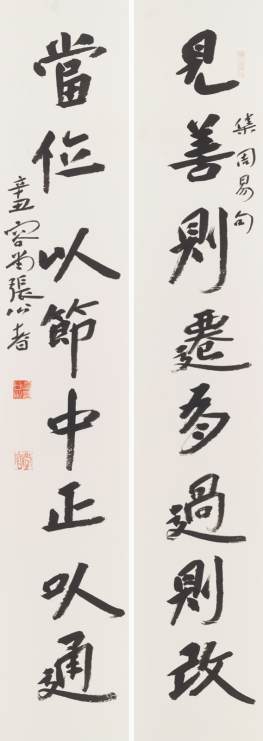 見善則遷有過則改
集周易句
當位以節中正以通
辛丑容堂張公者